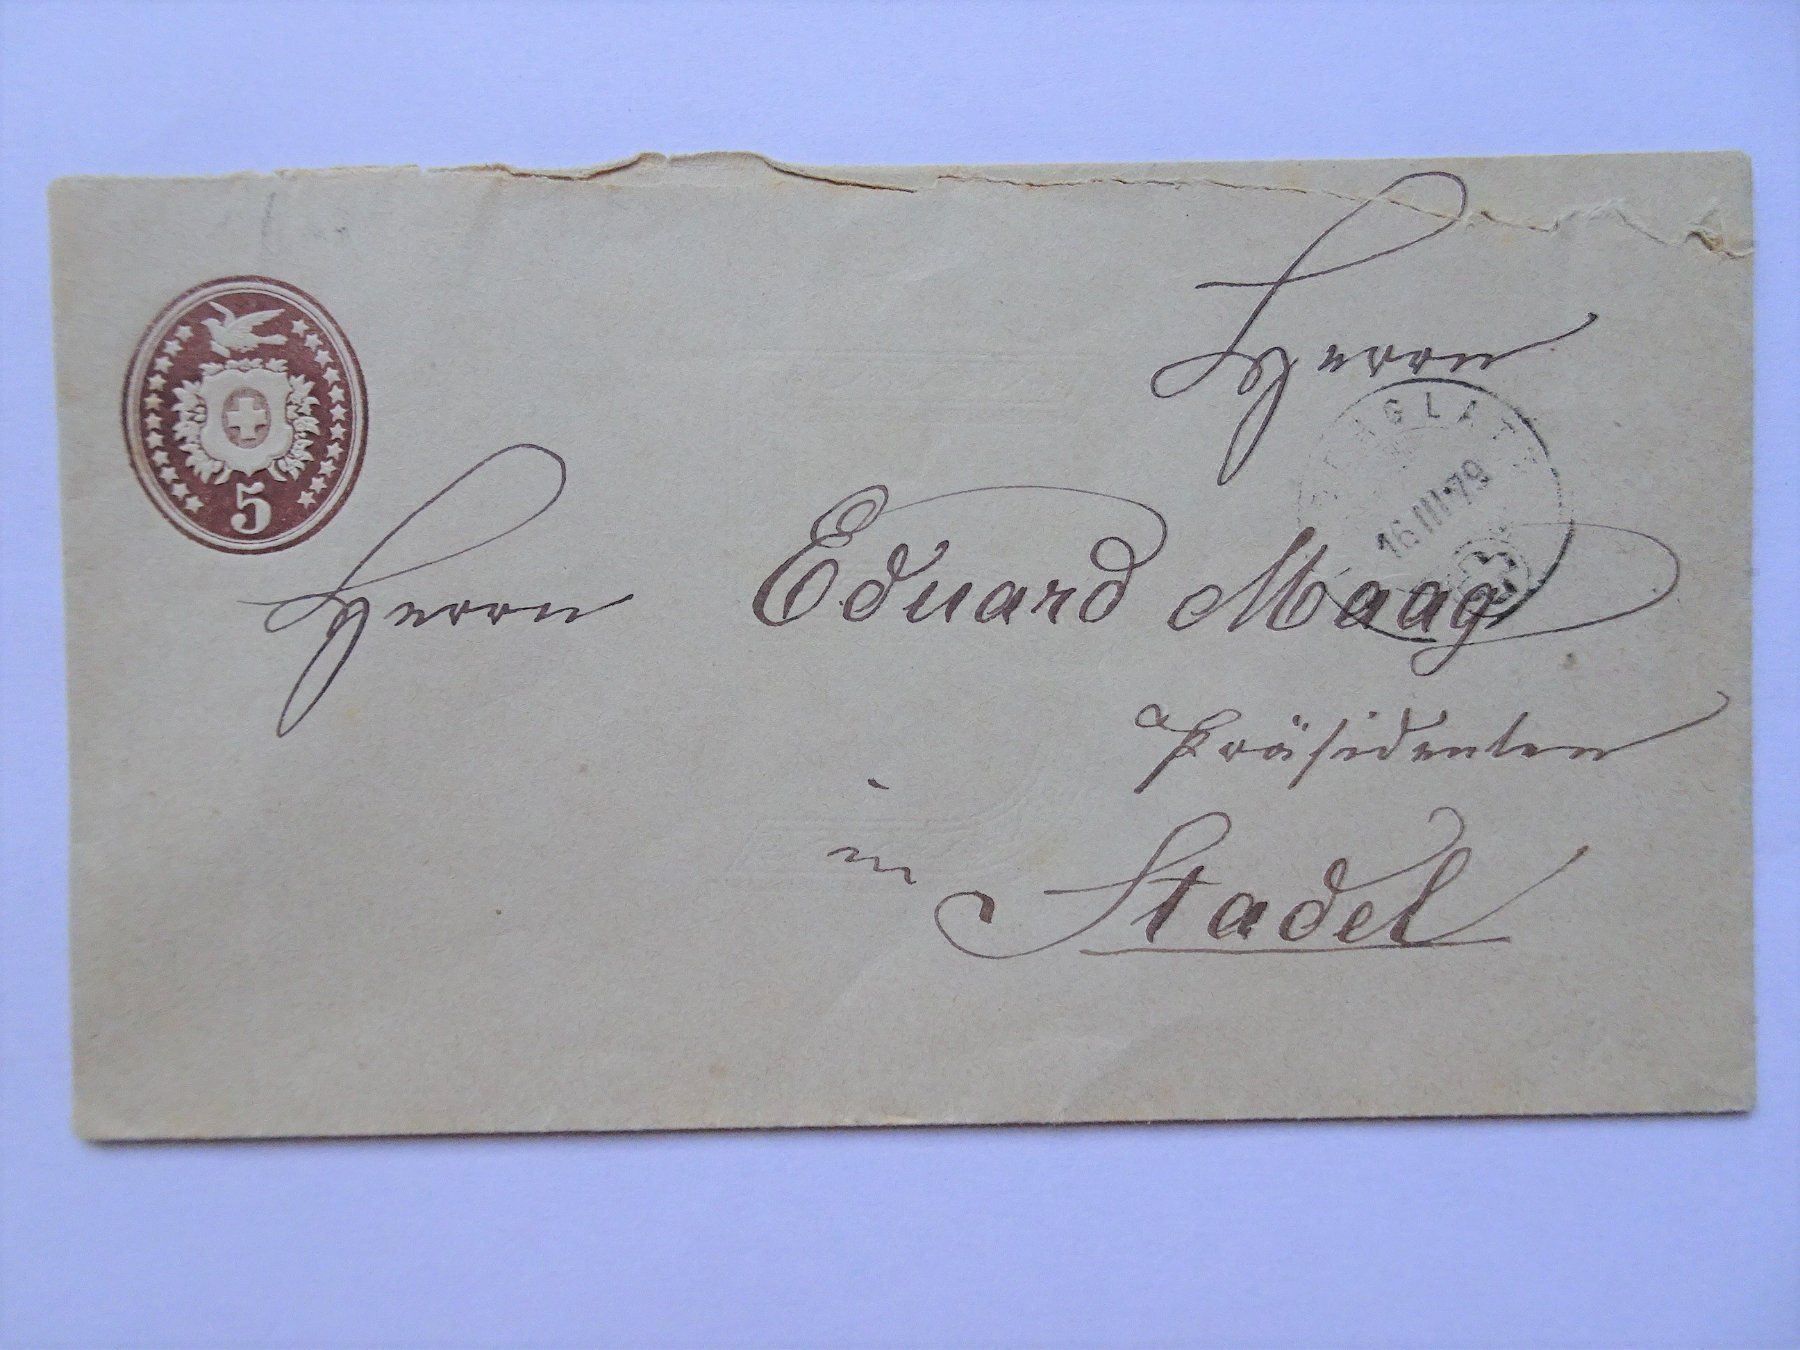 5
Herrn
GLAT
16 III 79
Herrn Eduard Maag
Präsidenten
in Stadel